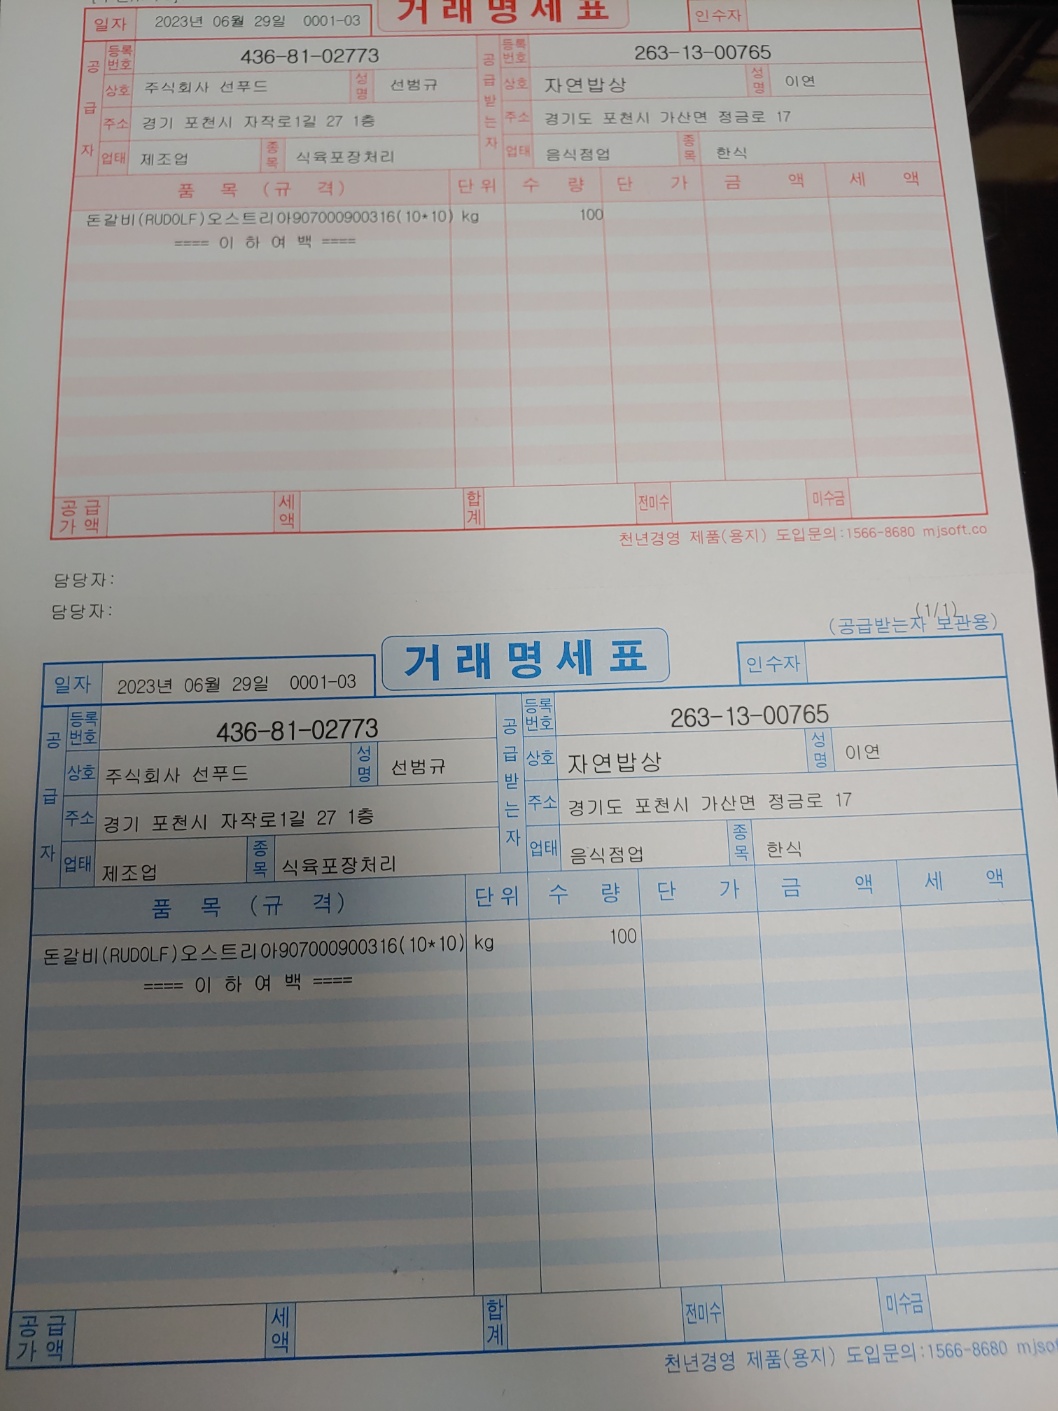 거래명세표
일자 2023년 06월 29일 0001-03 인수자
공급자 등록번호 436-81-02773 공급받는자 등록번호 263-13-00765
상호 주식회사 선푸드 성명 선범규 상호 자연밥상 성명 이연
주소 경기 포천시 자작로1길 27 1층 주소 경기도 포천시 가산면 정금로 17
업태 제조업 종목 식육포장처리 업태 음식점업 종목 한식
품 목 (규 격) 단위 수 량 단 가 금 액 세 액
돈갈비(RUDOLF)오스트리아907000900316(10*10) kg 100
==== 이 하 여 백 ====
공급가액 세액 합계 전미수 미수금
천년경영 제품(용지) 도입문의:1566-8680 mjsoft.co
담당자:
담당자:
(1/1)
(공급받는자 보관용)
거래명세표
일자 2023년 06월 29일 0001-03 인수자
공급자 등록번호 436-81-02773 공급받는자 등록번호 263-13-00765
상호 주식회사 선푸드 성명 선범규 상호 자연밥상 성명 이연
주소 경기 포천시 자작로1길 27 1층 주소 경기도 포천시 가산면 정금로 17
업태 제조업 종목 식육포장처리 업태 음식점업 종목 한식
품 목 (규 격) 단위 수 량 단 가 금 액 세 액
돈갈비(RUDOLF)오스트리아907000900316(10*10) kg 100
==== 이 하 여 백 ====
공급가액 세액 합계 전미수 미수금
천년경영 제품(용지) 도입문의:1566-8680 mjsof